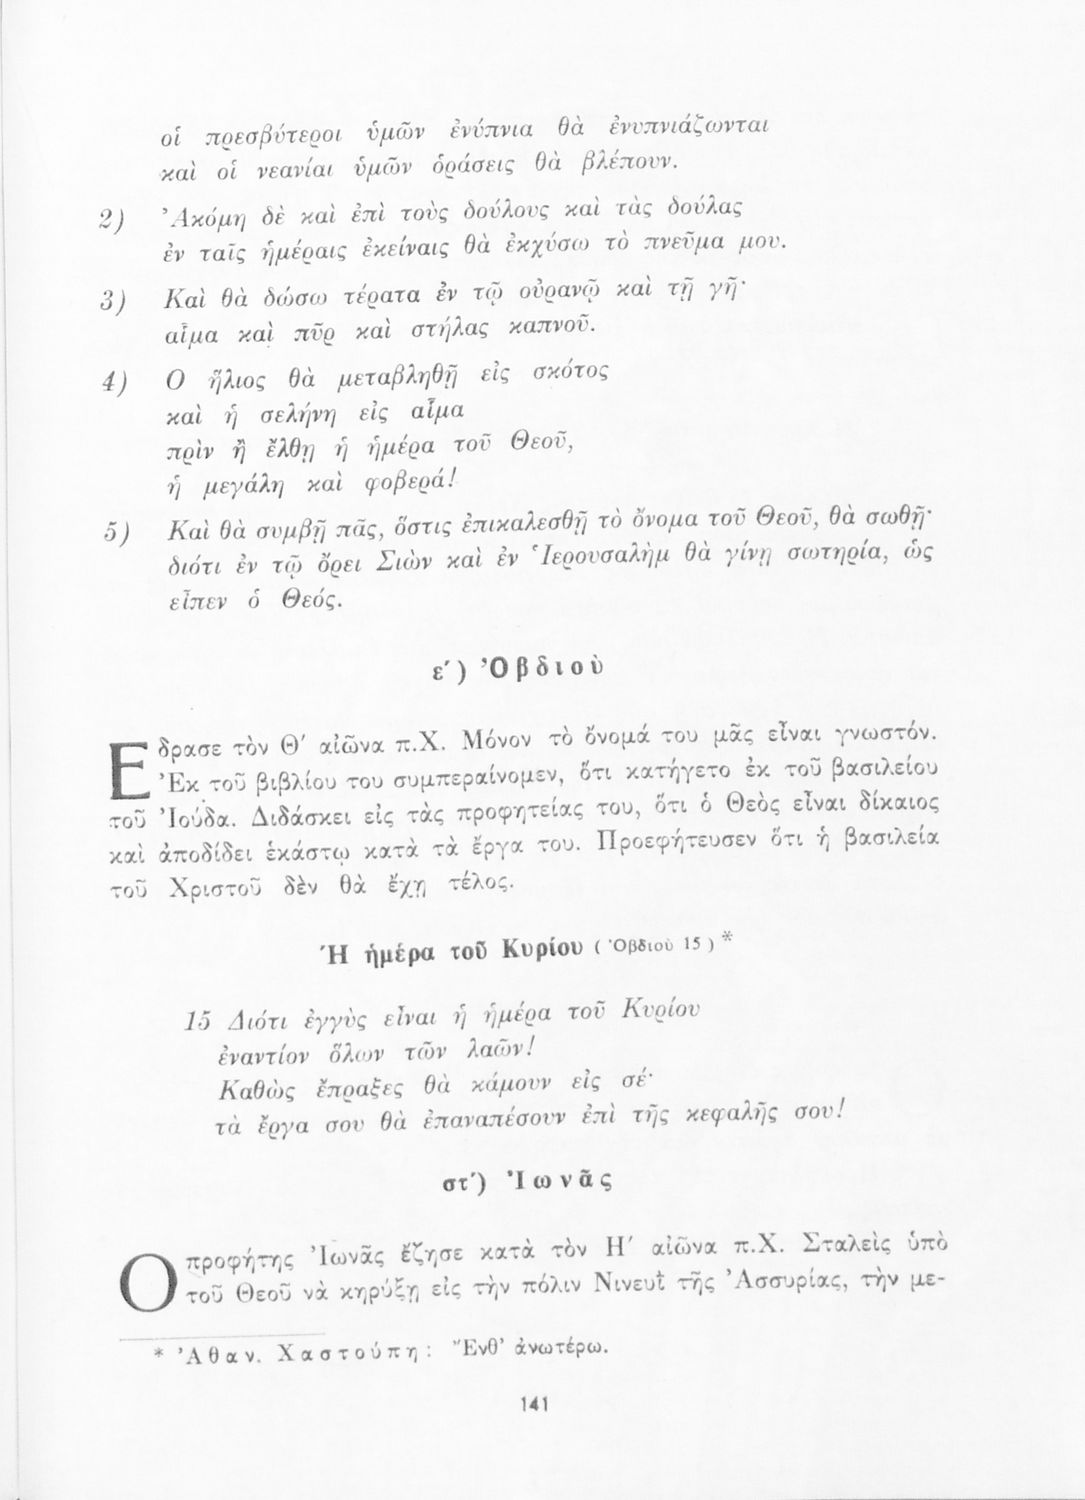 οἱ πρεσβύτεροι ὑμῶν ἐνύπνια θὰ ἐνυπνιάζωνται
καὶ οἱ νεανίαι ὑμῶν ὁράσεις θὰ βλέπουν.
2) Ἀκόμη δὲ καὶ ἐπὶ τοὺς δούλους καὶ τὰς δούλας
ἐν ταῖς ἡμέραις ἐκείναις θὰ ἐκχύσω τὸ πνεῦμα μου.
3) Καὶ θὰ δώσω τέρατα ἐν τῷ οὐρανῷ καὶ τῇ γῇ·
αἷμα καὶ πῦρ καὶ στήλας καπνοῦ.
4) Ο ἥλιος θὰ μεταβληθῇ εἰς σκότος
καὶ ἡ σελήνη εἰς αἷμα
πρὶν ἢ ἔλθῃ ἡ ἡμέρα τοῦ Θεοῦ,
ἡ μεγάλη καὶ φοβερά!
5) Καὶ θὰ συμβῇ πᾶς, ὅστις ἐπικαλεσθῇ τὸ ὄνομα τοῦ Θεοῦ, θὰ σωθῇ·
διότι ἐν τῷ ὄρει Σιὼν καὶ ἐν Ἱερουσαλὴμ θὰ γίνῃ σωτηρία, ὡς
εἶπεν ὁ Θεός.
ε΄) Ὀβδιοὺ
Εδρασε τὸν Θ΄ αἰῶνα π.Χ. Μόνον τὸ ὄνομά του μᾶς εἶναι γνωστόν.
Ἐκ τοῦ βιβλίου του συμπεραίνομεν, ὅτι κατήγετο ἐκ τοῦ βασιλείου
τοῦ Ἰούδα. Διδάσκει εἰς τὰς προφητείας του, ὅτι ὁ Θεὸς εἶναι δίκαιος
καὶ ἀποδίδει ἑκάστῳ κατὰ τὰ ἔργα του. Προεφήτευσεν ὅτι ἡ βασιλεία
τοῦ Χριστοῦ δὲν θὰ ἔχῃ τέλος.
Ἡ ἡμέρα τοῦ Κυρίου ( Ὀβδιοὺ 15 ) *
15 Διότι ἐγγὺς εἶναι ἡ ἡμέρα τοῦ Κυρίου
ἐναντίον ὅλων τῶν λαῶν!
Καθὼς ἔπραξες θὰ κάμουν εἰς σέ·
τὰ ἔργα σου θὰ ἐπαναπέσουν ἐπὶ τῆς κεφαλῆς σου!
στ΄) Ἰωνᾶς
Ο προφήτης Ἰωνᾶς ἔζησε κατὰ τὸν Η΄ αἰῶνα π.Χ. Σταλεὶς ὑπὸ
τοῦ Θεοῦ νὰ κηρύξῃ εἰς τὴν πόλιν Νινευῒ τῆς Ἀσσυρίας, τὴν με-
* Ἀθαν. Χαστούπη: Ἔνθ' ἀνωτέρω.
141